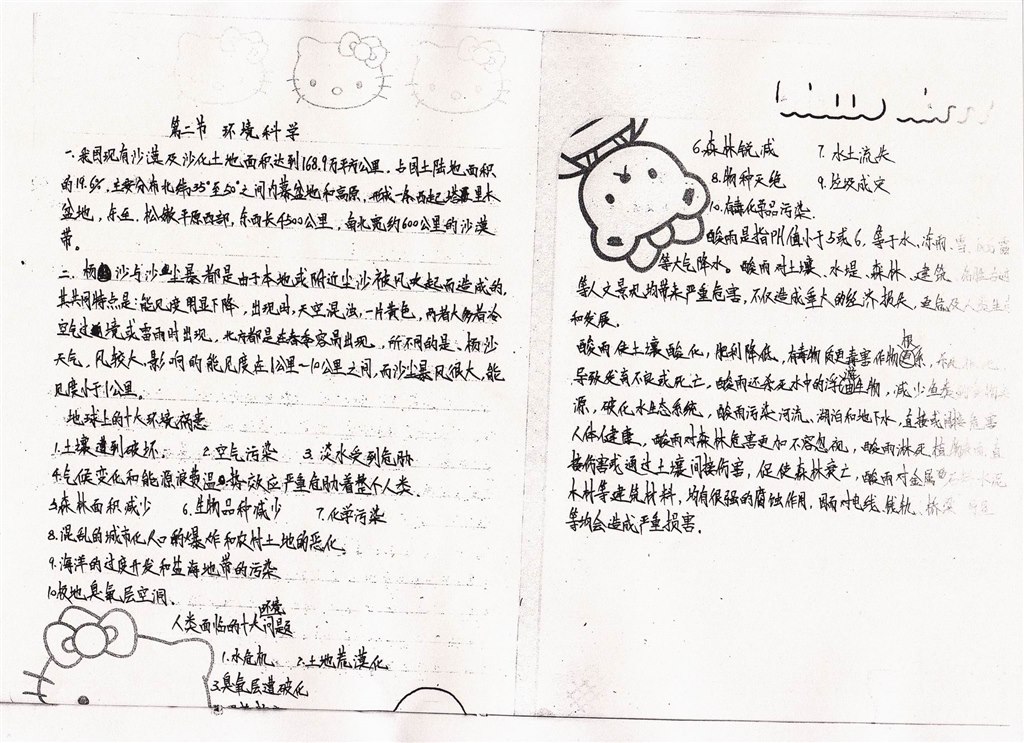 第二节 环境科学
一、我国现有沙漠及沙化土地面积达到168.9万平方公里，占国土陆地面积
的19.6%，主要分布北纬35°至50°之间内蒙盆地和高原，形成一条西起塔里木
盆地，东至松嫩平原西部，东西长4500公里，南北宽约600公里的沙漠
带。
二、杨沙与沙尘暴都是由于本地或附近尘沙被风吹起而造成的，
其共同特点是：能见度明显下降，出现时，天空混浊，一片黄色，两者大多者冷
空气过境或雷雨时出现，北方都是在春季容易出现，所不同的是、杨沙
天气，风较大，影响的能见度在1公里一10公里之间，而沙尘暴风很大，能
见度小于1公里。
地球上的十大环境病患
1.土壤遭到破坏. 2.空气污染 3.淡水受到危胁
4.气候变化和能源浪费温室效应严重危胁着整个人类.
5.森林面积减少 6.生物品种减少 7.化学污染
8.混乱的城市化人口的爆炸和农村土地的恶化.
9.海洋的过度开发和盐海地带的污染
10.极地臭氧层空洞、
人类面临的十大环境问题
1.水危机. 2.土地荒漠化
3.臭氧层遭破化
6.森林锐减 7.水土流失
8.物种灭绝 9.垃圾成灾
10.有毒化学品污染.
酸雨是指PH值小于5或6，等于水、冻雨、雪、
等大气降水。酸雨对土壤、水堤、森林、建筑、
等人文景观均带来严重危害，不仅造成重大的经济损失，更危及人类生
和发展.
酸雨使土壤酸化，肥利降低，有毒物质更毒害作物根系，
导致发育不良或死亡，酸雨还杀死水中的浮游生物，减少鱼类
源，破化水态系统，酸雨污染河流、湖泊和地下水，直接或间接危害
人体健康、酸雨对森林危害更加不容忽视，酸雨淋死植
接伤害或通过土壤间接伤害，促使森林衰亡，酸雨对金属 水泥
木材等建筑材料，均有很强的腐蚀作用，因而对电线、铁轨、桥梁
等均会造成严重损害。